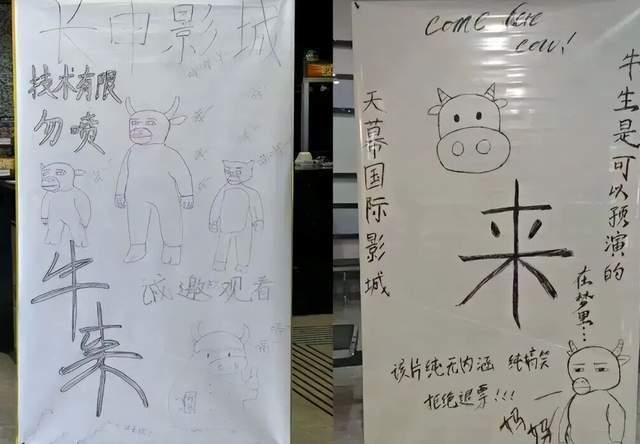 长申影城
技术有限
勿喷
牛来
诚邀观看
come here
cow!
牛生是可以预演的
在梦里…
天幕国际影城
来
该片纯无内涵 纯搞笑
拒绝退票!!!
妈妈